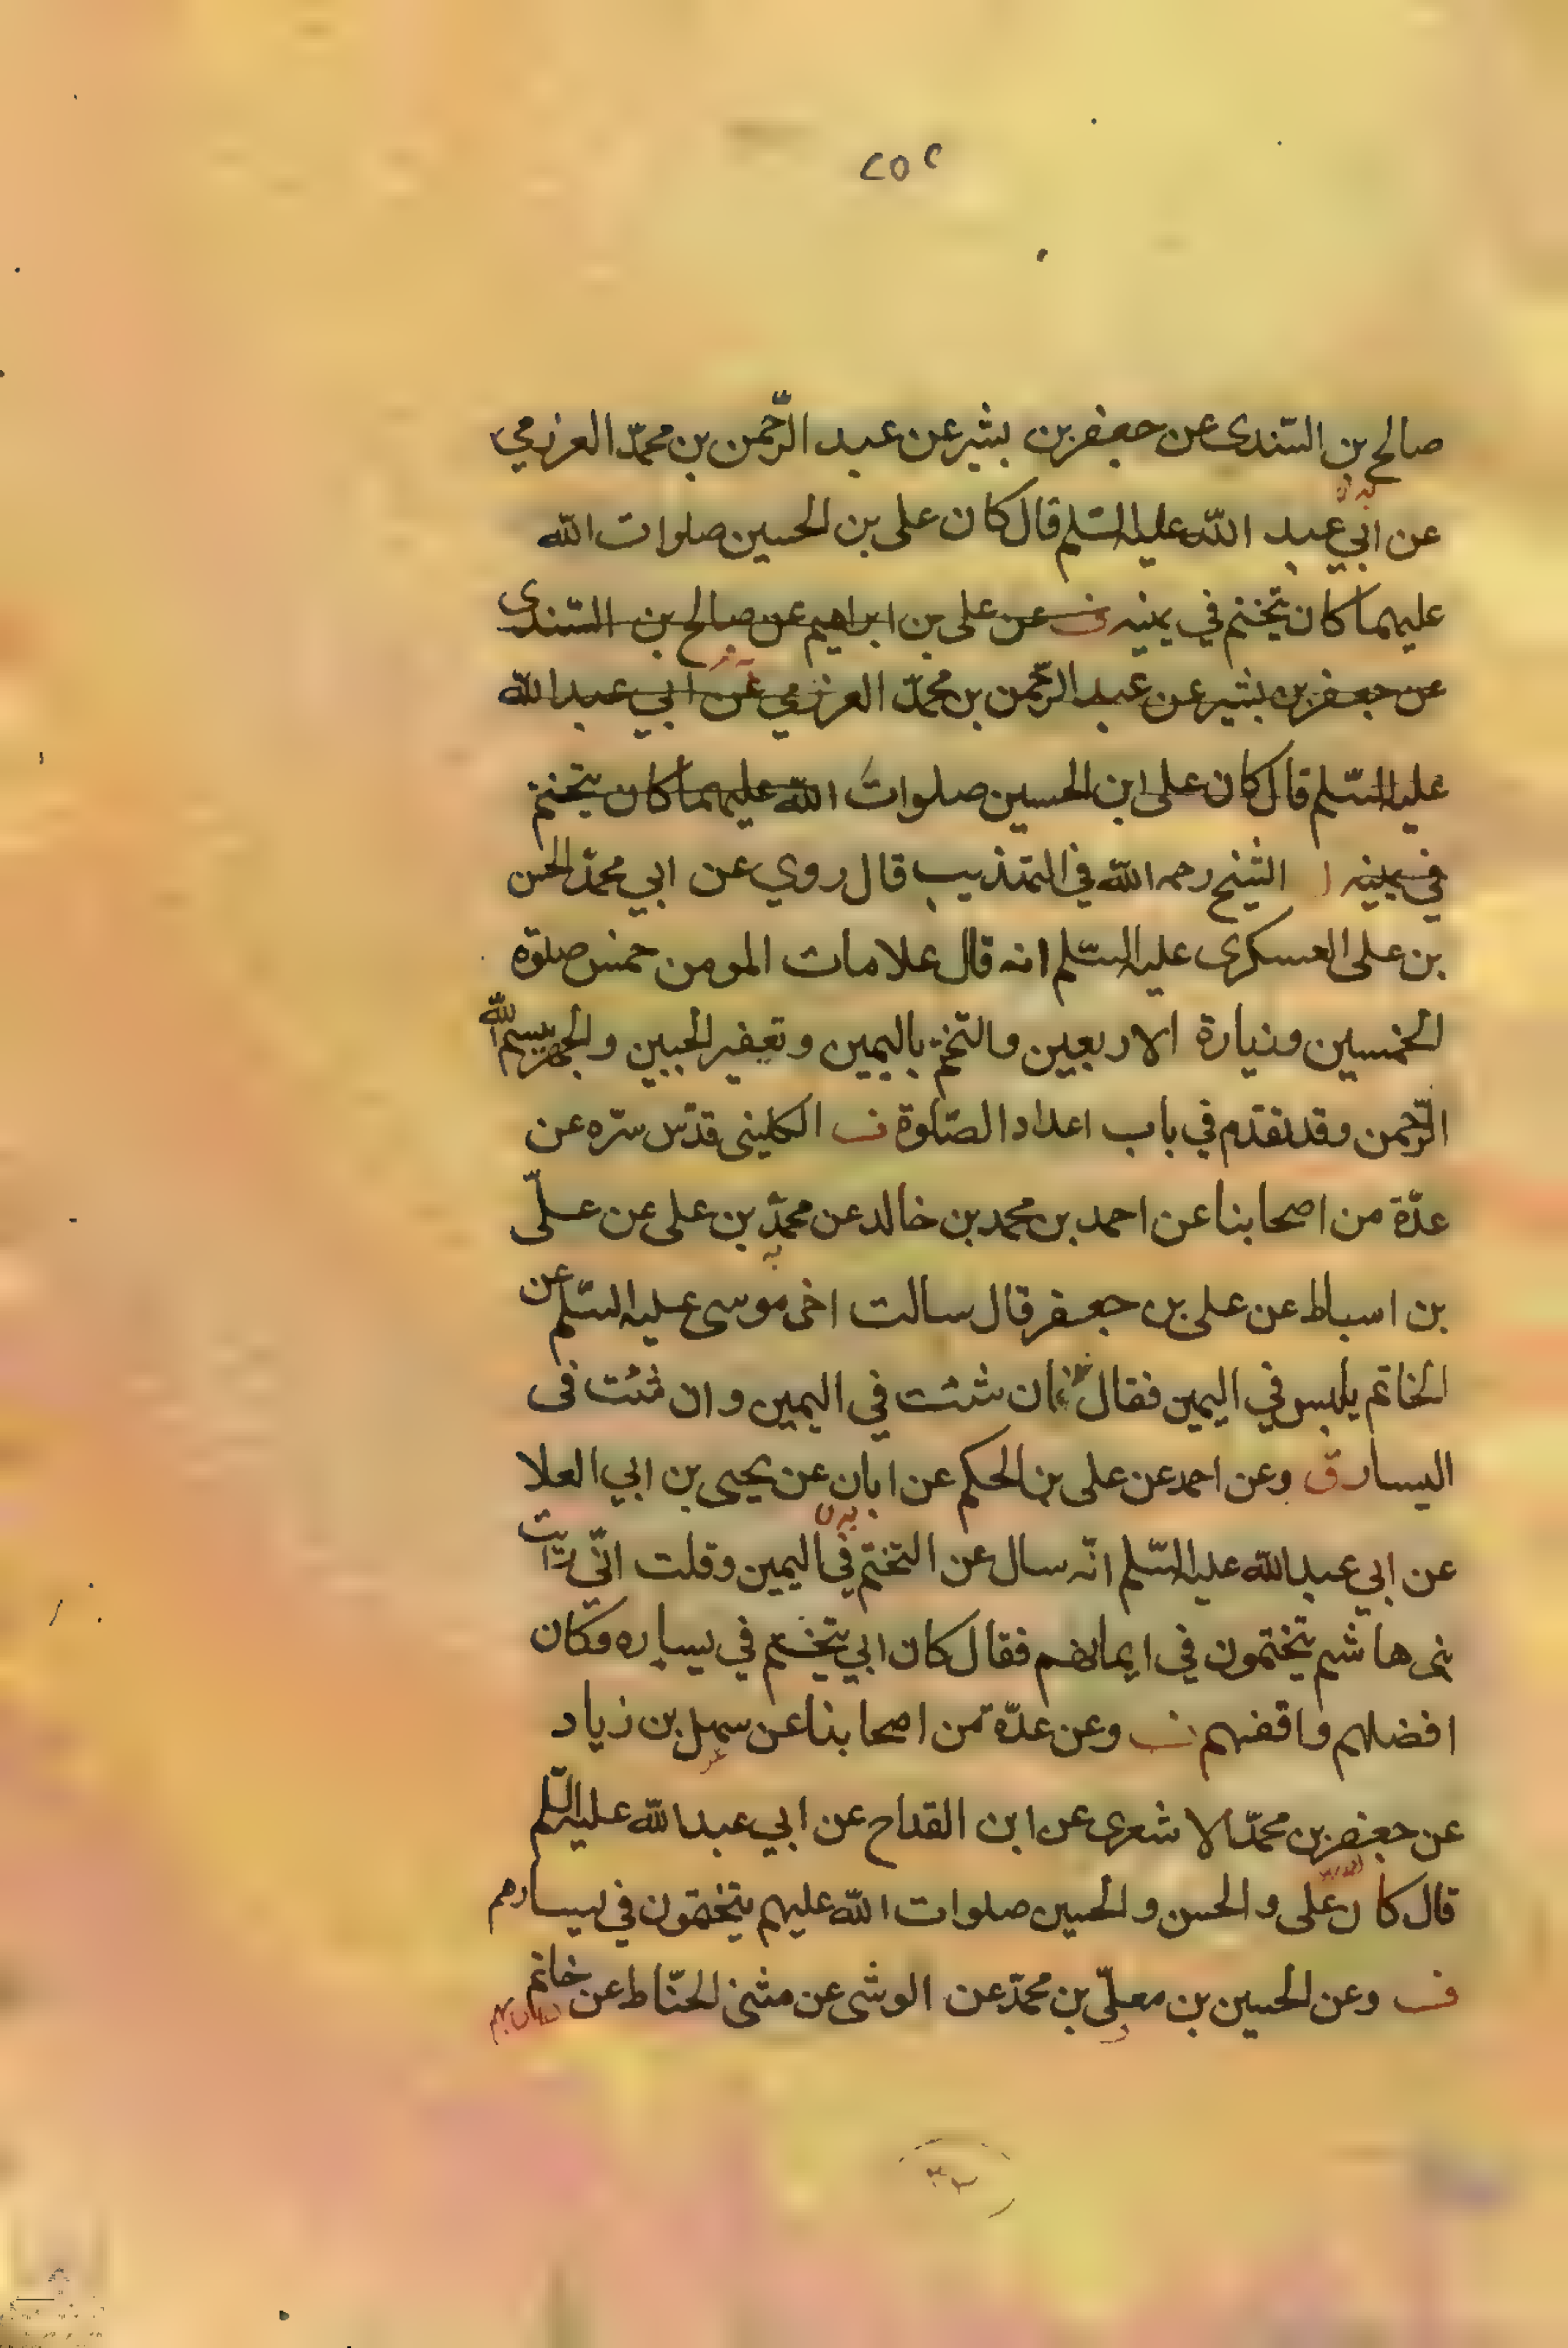 ٢٥٢
صالح بن السّندى عن جعفر بن بشير عن عبد الرّحمن بن محمّد العرزمي
عن ابي عبد الله عليه السّلم قال كان على بن الحسين صلوات الله
عليهما كان يتختم في يمينه ف عن على بن ابراهيم عن صالح بن السّندى
عن جعفر بن بشير عن عبد الرّحمن بن محمّد العرزمي عن ابي عبد الله
عليه السّلم قال كان على ابن الحسين صلوات الله عليهما كان يتختم
في يمينه الشيخ رحمه الله في التهذيب قال روي عن ابي محمّد الحسن
بن على العسكرى عليه السّلم انه قال علامات المومن خمس صلوة
الخمسين وزيارة الاربعين والتختم باليمين وتعفير الجبين والجهر ببسم الله
الرّحمن وقد تقدّم في باب اعداد الصّلوة ف الكلينى قدّس سرّه عن
عدّة من اصحابنا عن احمد بن محمد بن خالد عن محمّد بن على عن علّى
بن اسباط عن على بن جعفر قال سالت اخى موسى عليه السّلم عن
الخاتم يلبس في اليمين فقال ان شئت في اليمين وان شئت فى
اليسار ق وعن احمد عن على بن الحكم عن ابان عن يحيى بن ابي العلا
عن ابي عبد الله عليه السّلم انّه سال عن التختم في اليمين وقلت انّي رايت
بنى هاشم يتختمون في ايمانهم فقال كان ابي يتختم في يساره وكان
افضلهم وافقههم ف وعن عدّة من اصحابنا عن سهل بن زياد
عن جعفر بن محمّد الاشعرى عن ابن القداح عن ابي عبد الله عليه السّلم
قال كان على والحسن والحسين صلوات الله عليهم يتختمون في يسارهم
ف وعن الحسين بن معلّى بن محمّد عن الوشى عن مثنى الحنّاط عن خاتم